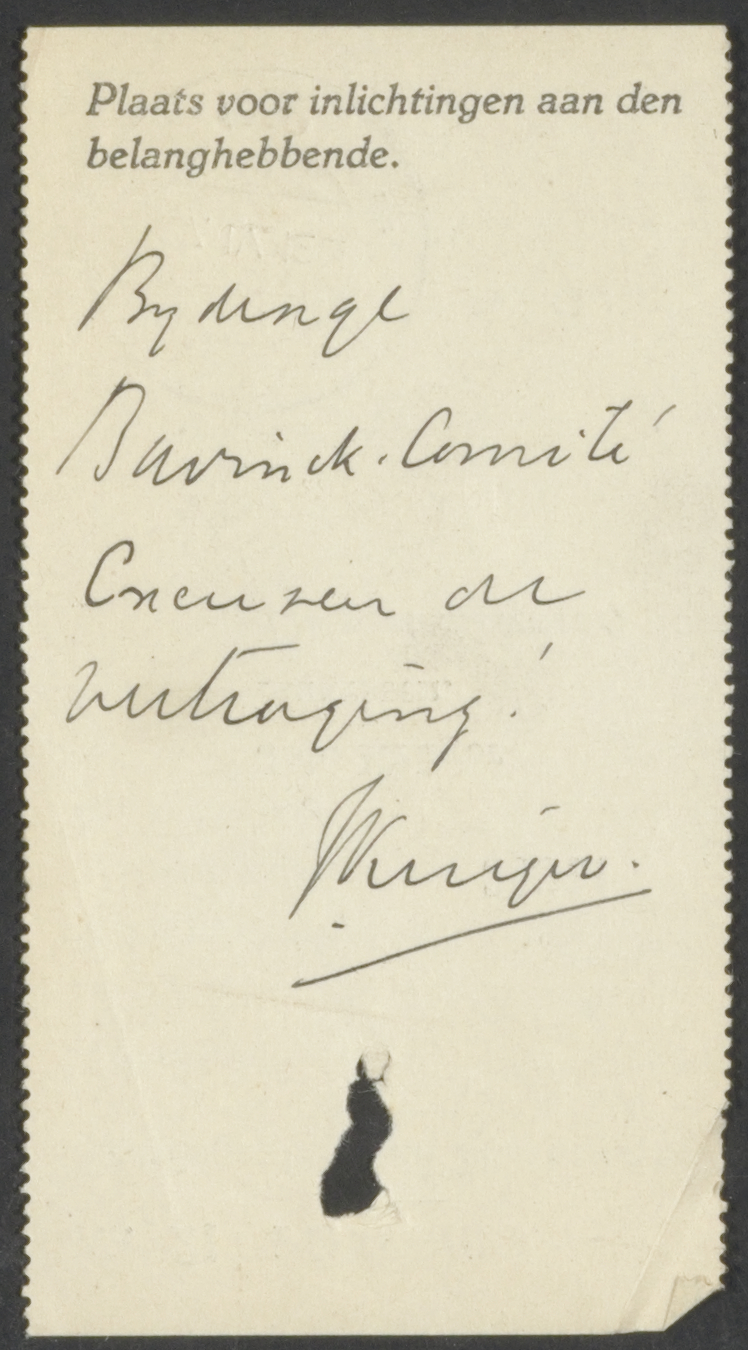 Plaats voor inlichtingen aan den
belanghebbende.
Bydrage
Bavinck-Comité
Excuseer de
vertraging!